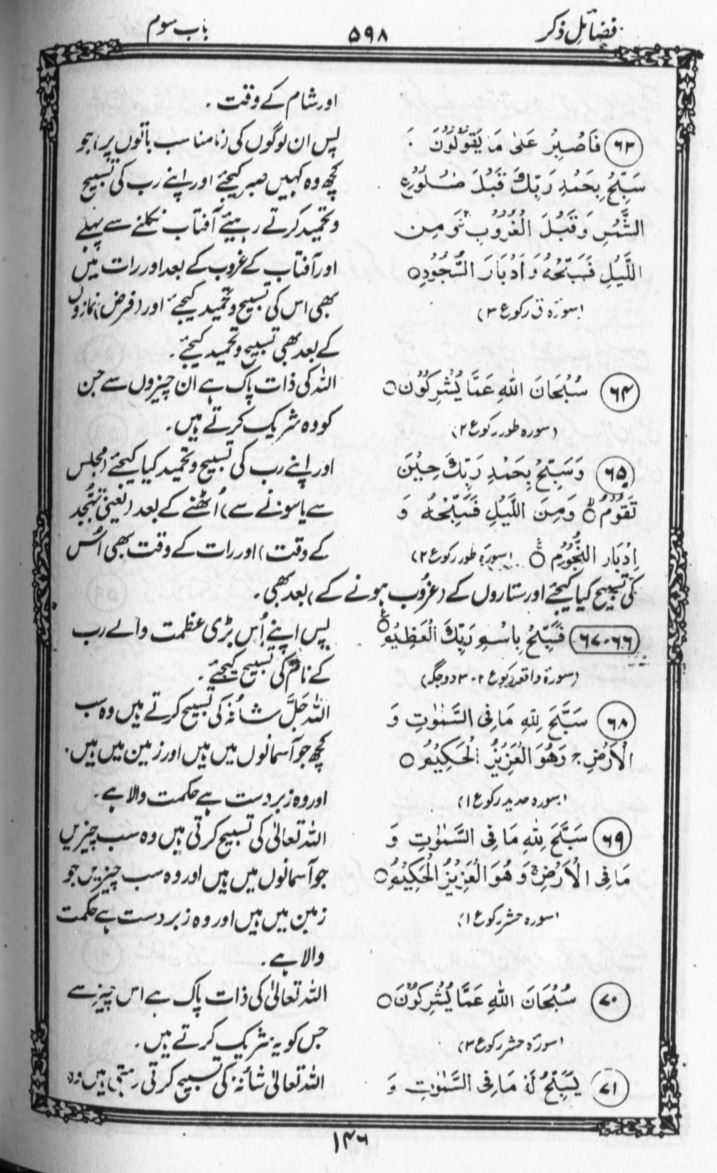 فضائل ذکر
۵۹۸
باب سوم
اور شام کے وقت ۔
۶۳ فَاصْبِرْ عَلٰى مَا يَقُوْلُوْنَ
سَبِّحْ بِحَمْدِ رَبِّكَ قَبْلَ طُلُوْعِ
الشَّمْسِ وَقَبْلَ الْغُرُوْبِ وَمِنَ
اللَّيْلِ فَسَبِّحْهُ وَاَدْبَارَ السُّجُوْدِ○
(سورۃ ق رکوع ۳)
پس ان لوگوں کی (نامناسب باتوں پر) جو
کچھ وہ کہیں صبر کیجئے اور اپنے رب کی تسبیح
و تحمید کرتے رہیئے آفتاب نکلنے سے پہلے
اور آفتاب کے غروب کے بعد اور رات میں
بھی اس کی تسبیح و تحمید کیجئے اور (فرض) نمازوں
کے بعد بھی تسبیح و تحمید کیجئے ۔
۶۴ سُبْحَانَ اللهِ عَمَّا يُشْرِكُوْنَ○
(سورہ طور رکوع ۲)
اللہ کی ذات پاک ہے ان چیزوں سے جن
کو وہ شریک کرتے ہیں ۔
۶۵ وَسَبِّحْ بِحَمْدِ رَبِّكَ حِيْنَ
تَقُوْمُ ○ وَمِنَ اللَّيْلِ فَسَبِّحْهُ وَ
اِدْبَارَ النُّجُوْمِ ○ (سورۃ طور رکوع ۲)
اور اپنے رب کی تسبیح و تحمید کیا کیجئے (مجلس
سے یا سونے سے) اُٹھنے کے بعد (یعنی تہجد
کے وقت) اور رات کے وقت بھی اس
کی تسبیح کیا کیجئے اور ستاروں کے (غروب ہونے کے) بعد بھی ۔
۶۶-۶۷ فَسَبِّحْ بِاسْمِ رَبِّكَ الْعَظِيْمِ○
(سورۃ واقعہ رکوع ۲-۳ دو جگہ)
پس اپنے اُس بڑی عظمت والے رب
کے نام کی تسبیح کیجئے ۔
۶۸ سَبَّحَ لِلّٰهِ مَا فِى السَّمٰوٰتِ وَ
الْاَرْضِ ۚ وَهُوَ الْعَزِيْزُ الْحَكِيْمُ ○
(سورہ حدید رکوع ۱)
اللہ جَلَّ شانُہٗ کی تسبیح کرتے ہیں وہ سب
کچھ جو آسمانوں میں ہیں اور زمین میں ہیں ۔
اور وہ زبردست ہے حکمت والا ہے ۔
۶۹ سَبَّحَ لِلّٰهِ مَا فِى السَّمٰوٰتِ وَ
مَا فِى الْاَرْضِ ۚ وَهُوَ الْعَزِيْزُ الْحَكِيْمُ○
(سورہ حشر رکوع ۱)
اللہ تعالیٰ کی تسبیح کرتی ہیں وہ سب چیزیں
جو آسمانوں میں ہیں اور وہ سب چیزیں جو
زمین میں ہیں اور وہ زبردست ہے حکمت
والا ہے ۔
۷۰ سُبْحَانَ اللهِ عَمَّا يُشْرِكُوْنَ○
(سورۃ حشر رکوع ۳)
اللہ تعالیٰ کی ذات پاک ہے اس چیز سے
جس کو یہ شریک کرتے ہیں ۔
۷۱ يُسَبِّحُ لَهٗ مَا فِى السَّمٰوٰتِ وَ
اللہ تعالیٰ شانُہٗ کی تسبیح کرتی رہتی ہیں وہ
۱۴۶